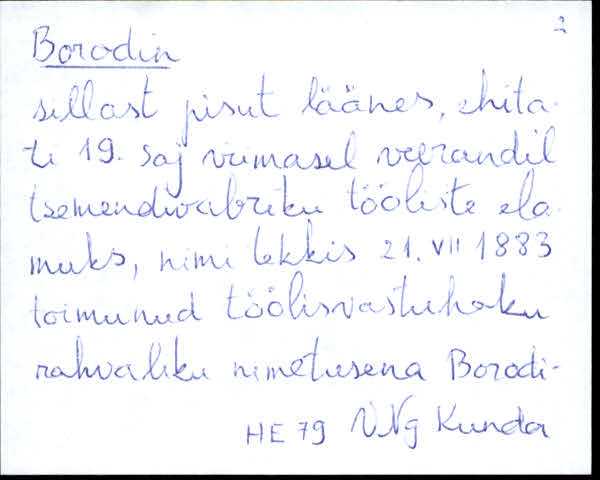 2
Borodin
sillast pisut läänes, ehita-
ti 19. saj viimasel veerandil
tsemendivabriku tööliste ela-
muks, nimi tekkis 21. VII 1883
toimunud töölisvastuhaku
rahvaliku nimetusena Borodi-
HE 79 VNg Kunda